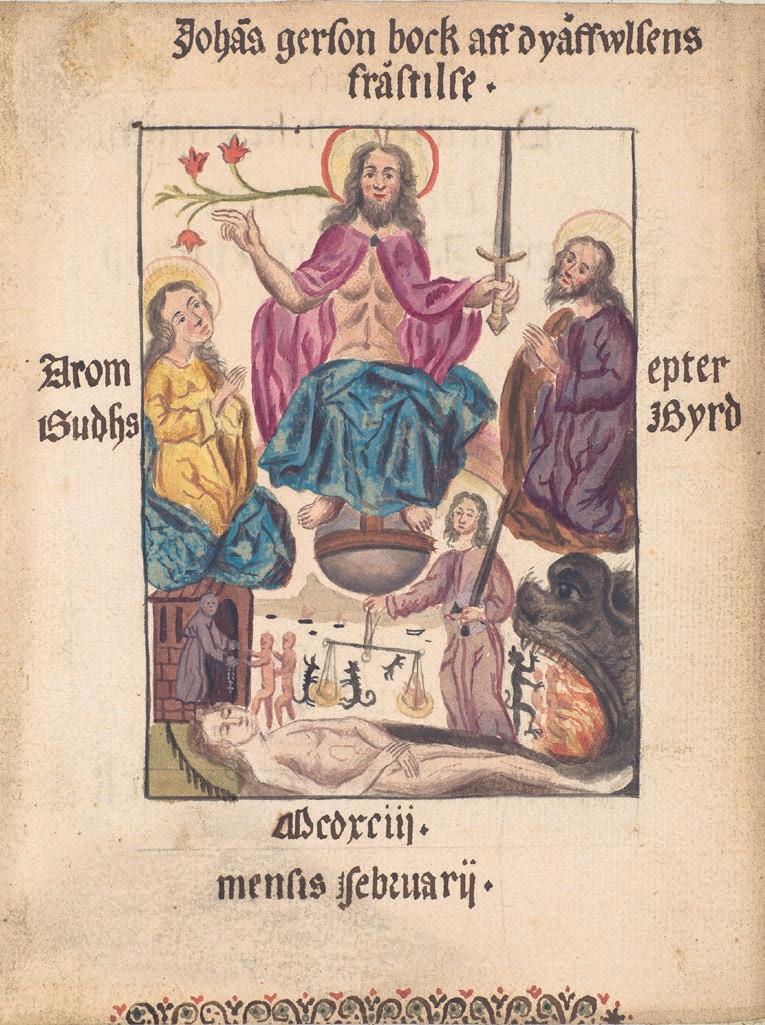 Johãs gerson bock aff dyäffwlsens
frästilse.
Arom epter
Gudhs Byrd
Mcdxciii.
mensis februarij.